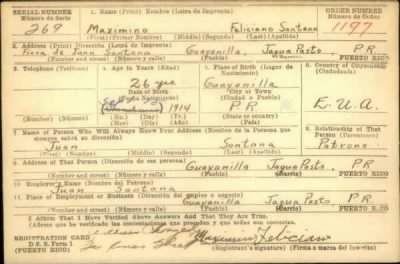 SERIAL NUMBER
Número de Serie
1. Name (Print) Nombre (Letra de Imprenta)
ORDER NUMBER
Número de Orden
269 Maximino Feliciano Santana 1197
(First) (Primer) (Middle) (Segundo) (Last) (Apellido)
2. Address (Print) Dirección (Letra de Imprenta)
Finca de Juan Santana Guayanilla Jagua Pasto, P R
(Number) (Número) (Street) (Calle) (Town) (Ciudad) (Barrio) PUERTO RICO
3. Telephone (Teléfono)
4. Age in Years (Edad)
5. Place of Birth (Lugar de Nacimiento)
6. Country of Citizenship (Ciudadanía)
26 yrs. Guayanilla
Date of Birth
(Fecha Nacimiento)
City or Town
(Ciudad o Pueblo)
1914 P R E. U. A.
(Number) (Número)
(Mo.) (Day) (Yr.)
(Mes) (Día) (Año)
State or country
(País)
7. Name of Person Who Will Always Know Your Address (Nombre de la Persona que siempre sabrá su dirección)
8. Relationship of That Person (Parentesco)
Juan Santana Patrono
(First) (Primer) (Middle) (Segundo) (Last) (Apellido)
9. Address of That Person (Dirección de esa persona)
Guayanilla Jagua Pasto, P R.
(Number) (Número) (Street) (Calle) (Town) (Ciudad) (Barrio) PUERTO RICO
10. Employer's Name (Nombre del Patrono)
Juan Santana
11. Place of Employment or Business (Dirección del empleo o negocio)
Guayanilla Jagua Pasto, P R.
(Number) (Número) (Street) (Calle) (Town) (Ciudad) (Barrio) PUERTO RICO
I Affirm That I Have Verified Above Answers And That They Are True.
(Afirmo que he verificado las contestaciones que preceden y que todas son correctas.
REGISTRATION CARD
D. S. S. Form 1
Maximino Felician
(Registrant's signature) (Firma o marca del inscrito)